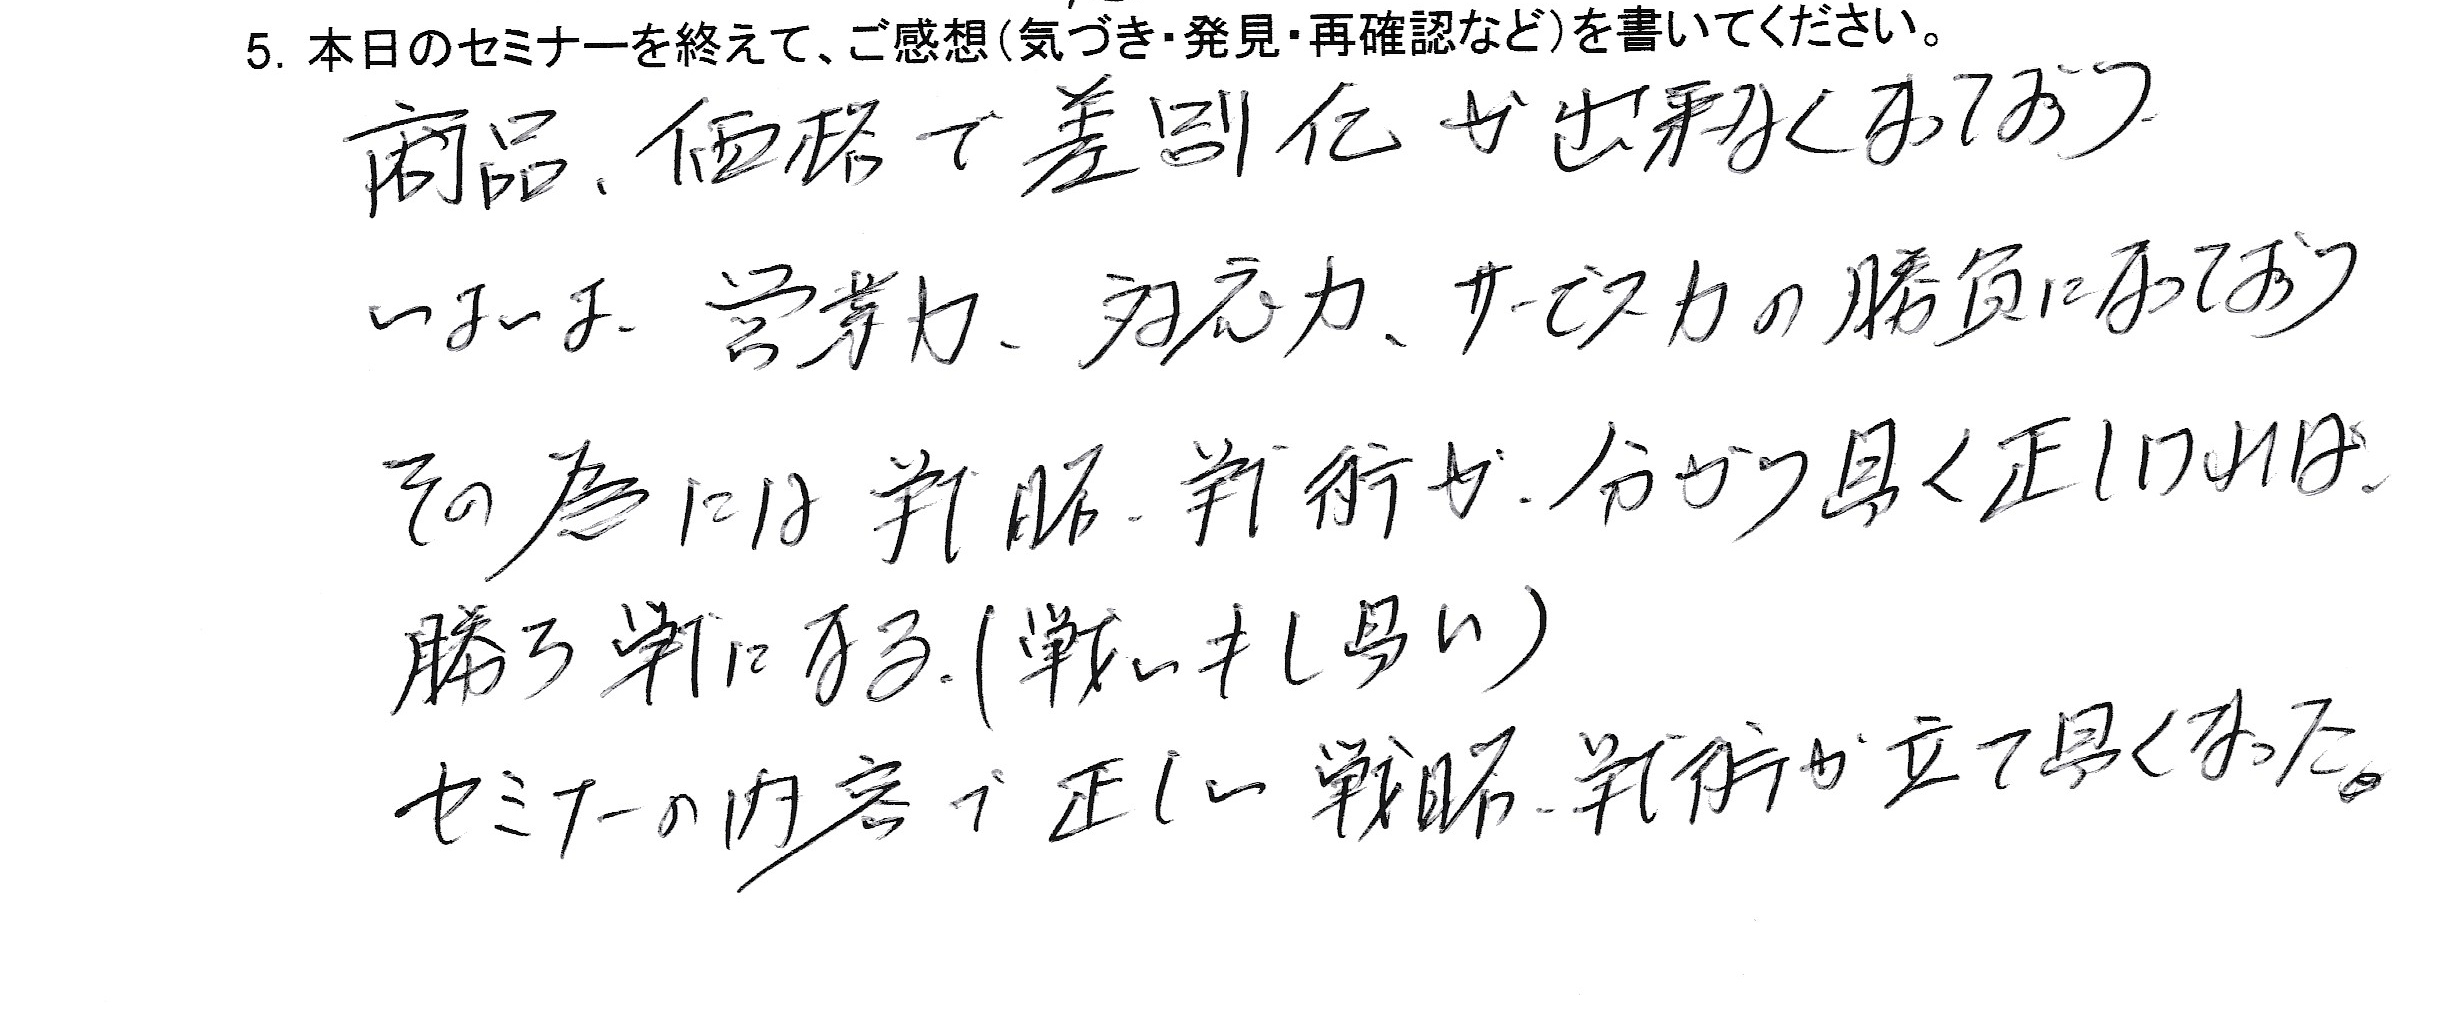 5. 本日のセミナーを終えて、ご感想(気づき・発見・再確認など)を書いてください。
商品、価格で差別化が出来なくなっており
いまは、営業力、対応力、サービス力の勝負になっており
その為には戦略、戦術が、分かり易く正しければ、
勝つ戦になる。(戦いもし易い)
セミナーの内容で正しい戦略、戦術が立て易くなった。